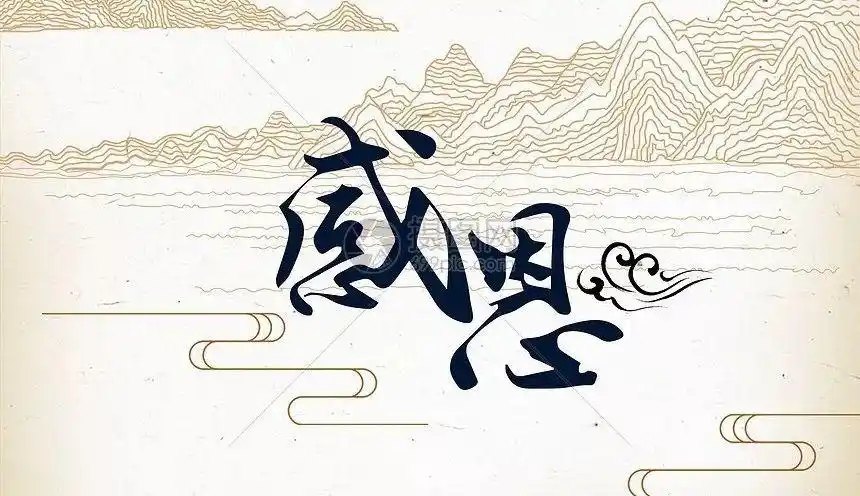 感恩
摄图网
699pic.com